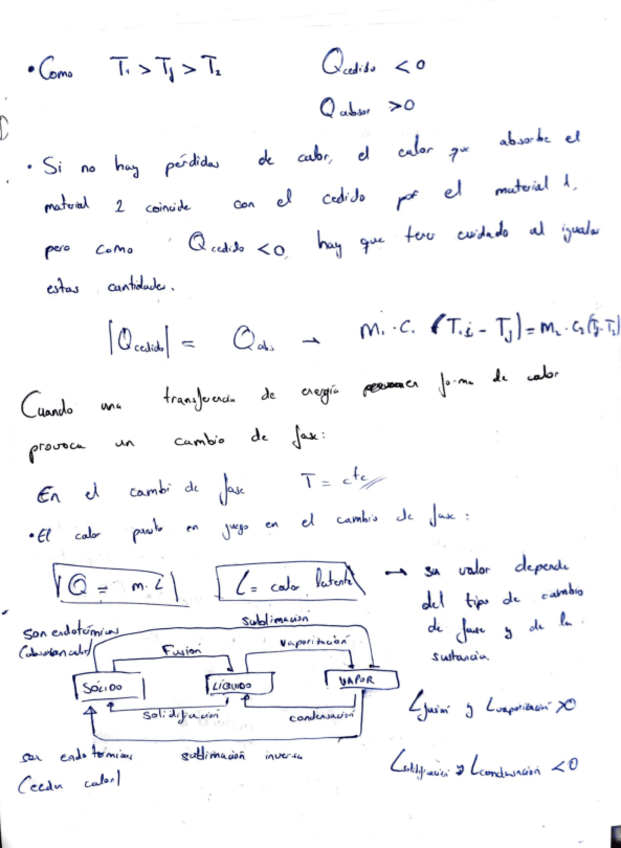 • Como T₁ > Tf > T₂ Qcedido < 0
Qabsor > 0
• Si no hay pérdidas de calor, el calor que absorbe el
material 2 coincide con el cedido por el material 1,
pero como Qcedido < 0, hay que tener cuidado al igualar
estas cantidades.
|Qcedido| = Qabs → m₁ · c₁ (T₁i - Tf) = m₂ · c₂ (Tf - T₂)
Cuando una transferencia de energía en forma de calor
provoca un cambio de fase:
En el cambi de fase T = cte
• El calor puesto en juego en el cambio de fase:
Q = m · L L = calor latente → su valor depende
del tipo de cambio
de fase y de la
sustancia
son endotérmicas
(absorben calor)
sublimación
Fusión vaporización
SÓLIDO LÍQUIDO VAPOR
solidificación condensación
Lfusión y Lvaporización > 0
son endotérmicas
(ceden calor)
sublimación inversa
Lsolidificación y Lcondensación < 0